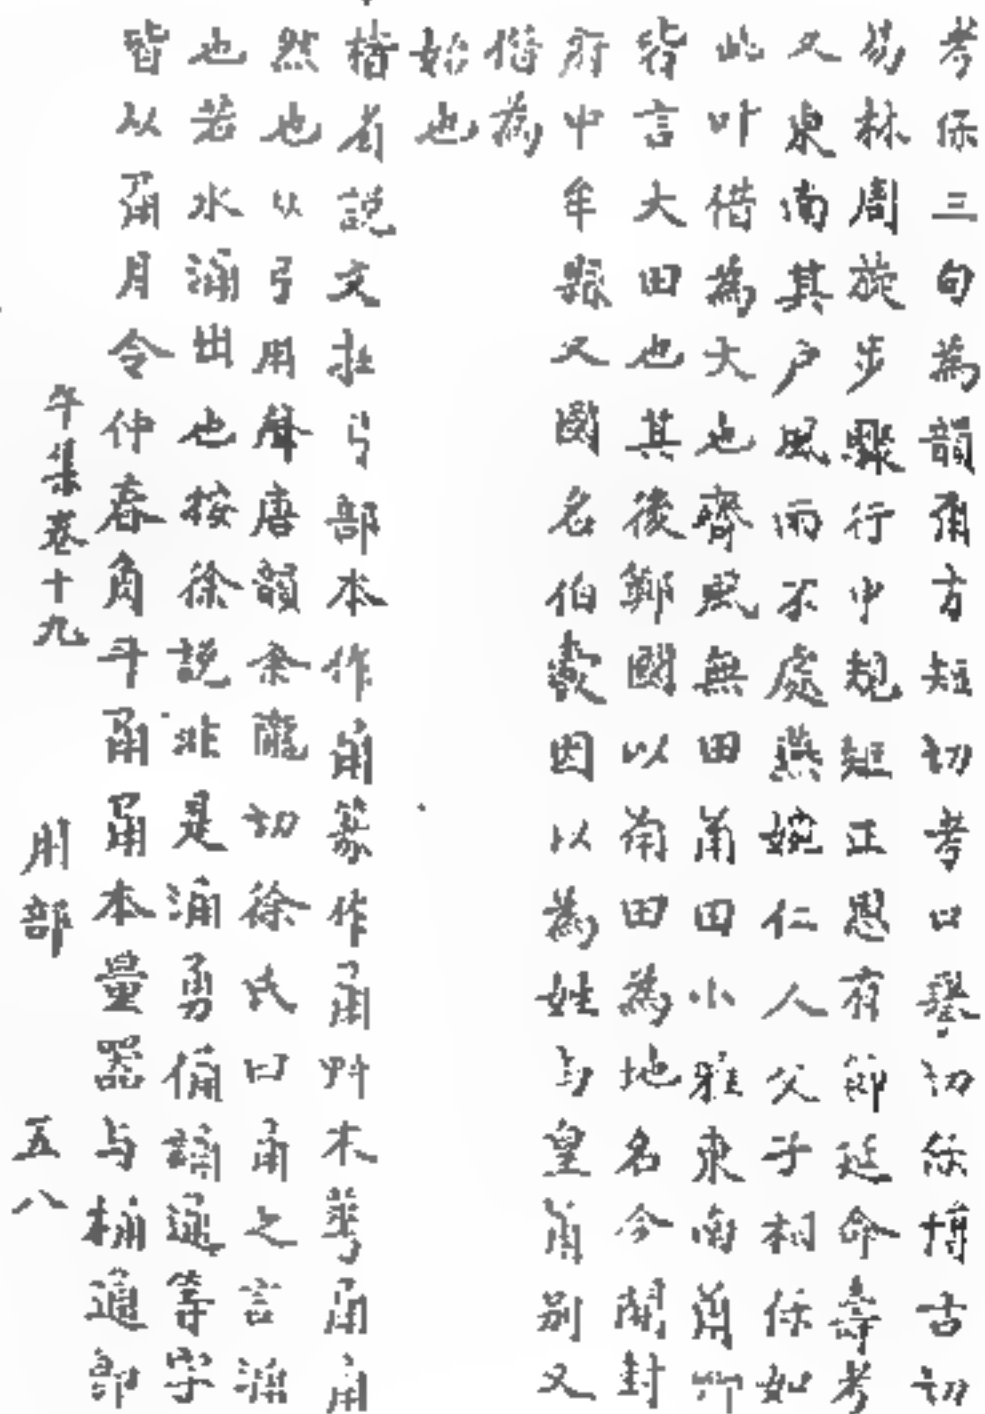 考保三句為韻甫方短切考口舉切保博古切
易林周旋步驟行中規矩正恩有節延命壽考
又東南其戶風雨不處燕婉仁人父子相保如
此叶借為大也齊風無田甫田小雅東南甫艸
皆言大田也其後鄭國以甫田為地名今開封
府中牟縣又國名伯爵因以為姓与皇甫別又
借為
始也
楷有說文在弓部本作甬篆作甬艸木華甬甬
然也从弓用聲唐韻余隴切徐氏曰甬之言涌
也若水涌出也按徐說非是涌勇俑誦通等字
皆从甬月令仲春角斗甬甬本量器与桶通即
午集卷十九
用部
五八